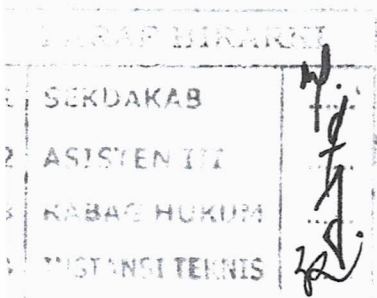 PARAF HIRARKI
SEKDAKAB
2 ASISTEN III
3 KABAG HUKUM
INSTANSI TEKNIS